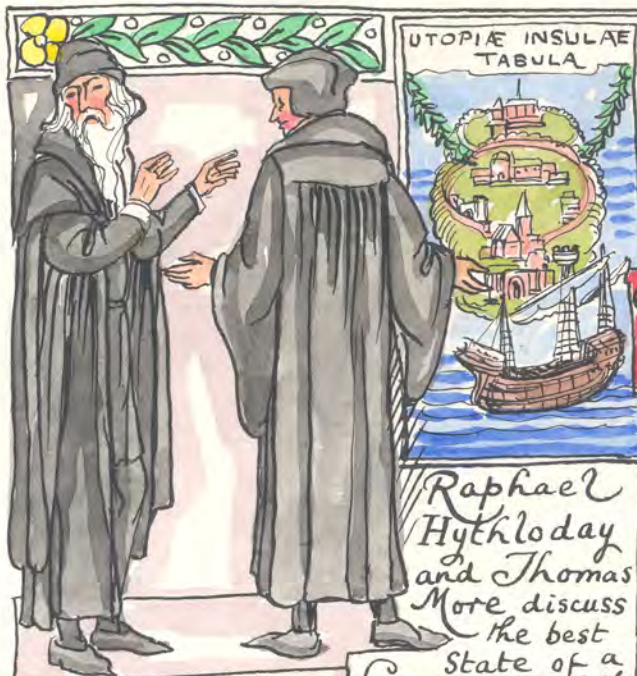 UTOPIÆ INSULAE
TABULA
Raphael
Hythloday
and Thomas
More discuss
the best
State of a